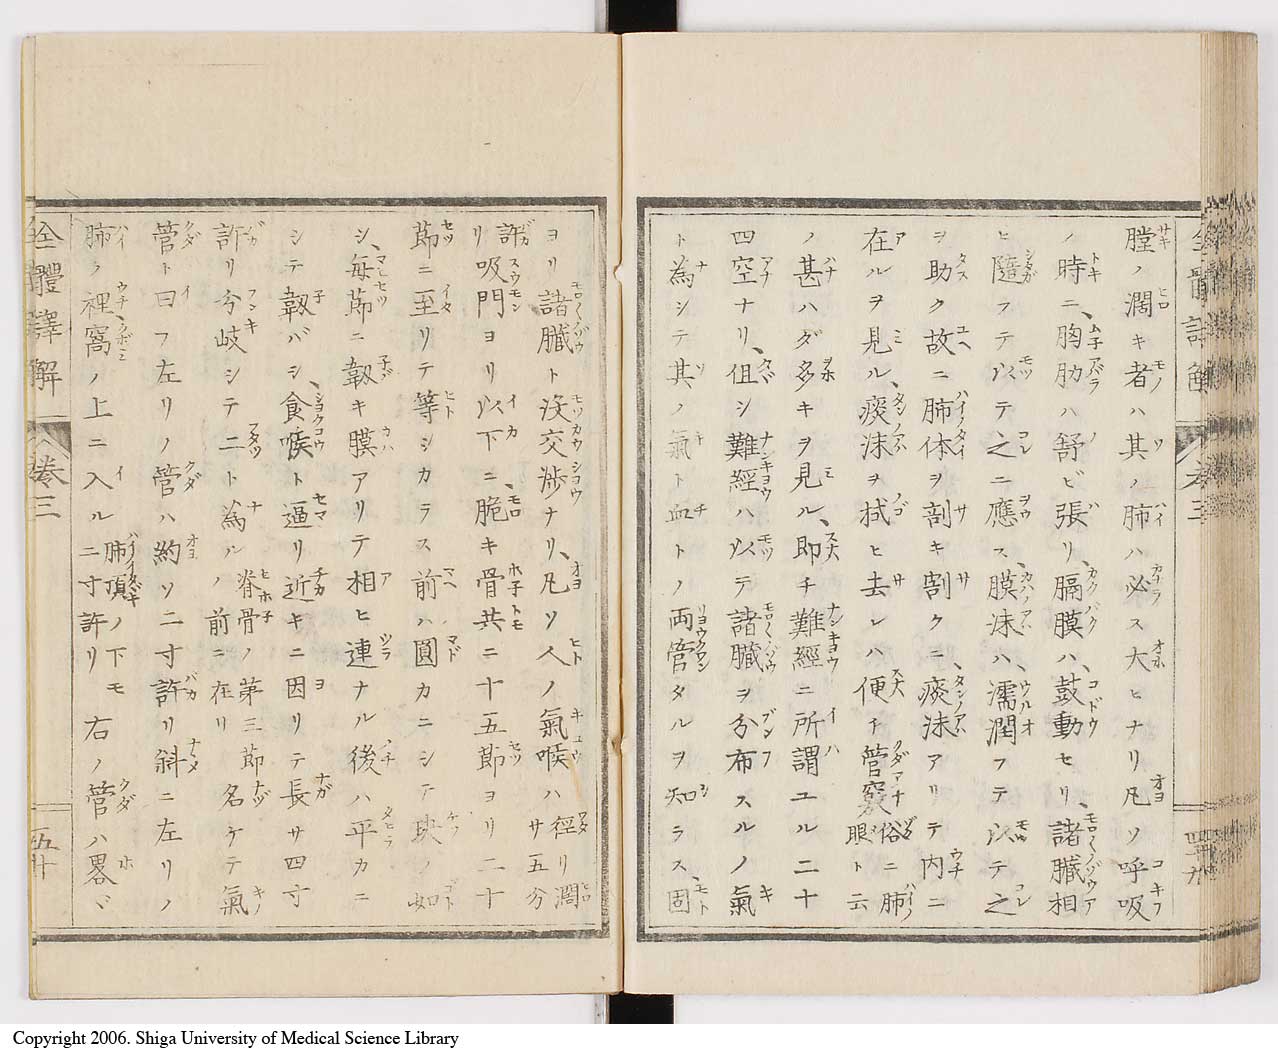 膛ノ濶キ者ハ其ノ肺ハ必ス大ヒナリ凡ソ呼吸
ノ時ニ、胸肋ハ舒ビ張リ、膈膜ハ、鼓動セリ、諸臓相
ヒ隨フテ以テ之ニ應ス、膜沫ハ、濡潤フテ以テ之
ヲ助ク故ニ肺体ヲ剖キ割クニ、痰沫アリテ内ニ
在ルヲ見ル、痰沫ヲ拭ヒ去レハ便チ管竅俗ニ肺眼ト云
ノ甚ハダ多キヲ見ル、即チ難經ニ所謂ユル二十
四空ナリ、但シ難經ハ以テ諸臓ヲ分布スルノ氣
ト為シテ其ノ氣ト血トノ両管タルヲ知ラス、固
ヨリ諸臓ト没交渉ナリ、凡ソ人ノ氣喉ハ徑リ濶サ五分
許リ吸門ヨリ以下ニ脆キ骨共ニ十五節ヨリ二十
節ニ至リテ等シカラス前ハ圓カニシテ玦ノ如
シ、毎節ニ韌キ膜アリテ相ヒ連ナル後ハ平カニ
シテ韌バシ、食喉ト逼リ近キニ因リテ長サ四寸
許リ分岐シテ二ト為ル脊骨ノ第三節ノ前ニ在リ名ケテ氣
管ト曰フ左リノ管ハ約ソ二寸許リ斜ニ左リノ
肺ノ裡窩ノ上ニ入ル肺頂ノ下モ二寸許リ右ノ管ハ畧ヾ
全體譯解
卷三
五十
四十九
Copyright 2006. Shiga University of Medical Science Library